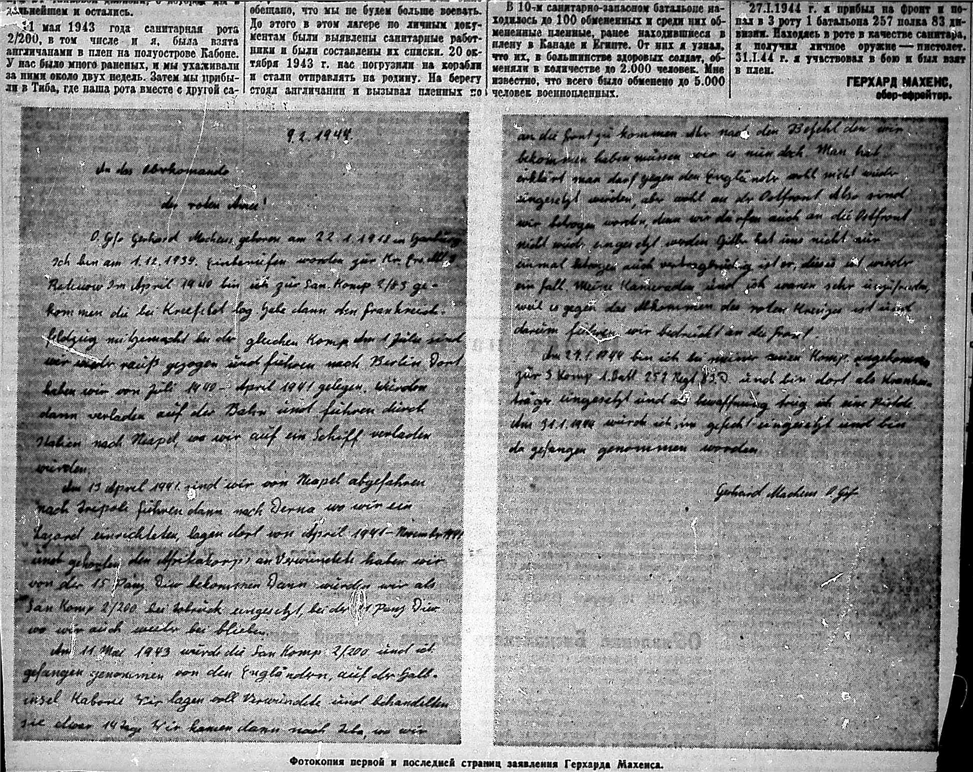 дальнейшем и остались.
11 мая 1943 года санитарная рота
2/200, в том числе и я, была взята
англичанами в плен на полуострове Кабоне.
У нас было много раненых, и мы ухаживали
за ними около двух недель. Затем мы прибы-
ли в Тиба, где наша рота вместе с другой са-
обещано, что мы не будем больше воевать.
До этого в этом лагере по личным доку-
ментам были выявлены санитарные работ-
ники и были составлены их списки. 20 ок-
тября 1943 г. нас погрузили на корабли
и стали отправлять на родину. На берегу
стоял англичанин и вызывал пленных по
В 10-м санитарно-запасном батальоне на-
ходилось до 100 обмененных и среди них об-
мененные пленные, ранее находившиеся в
плену в Канаде и Египте. От них я узнал,
что их, в большинстве здоровых солдат, об-
меняли в количестве до 2.000 человек. Мне
известно, что всего было обменено до 5.000
человек военнопленных.
27.I.1944 г. я прибыл на фронт и по-
пал в 3 роту 1 батальона 257 полка 83 ди-
визии. Находясь в роте в качестве санитара,
я получил личное оружие — пистолет.
31.I.44 г. я участвовал в бою и был взят
в плен.
ГЕРХАРД МАХЕНС,
обер-ефрейтор.
9.2.1944.
An das Oberkomando
der roten Armee!
O. Gfr Gerhard Machens geboren am 22.1.1918 in
Ich bin am 1.12.1939. worden zur Kr.
Im April 1940 bin ich zur San. Komp 2/ ge-
kommen die bei lag habe dann den Frankreich-
feldzug mitgemacht bei der gleichen Komp. Am 1 Juli sind
wir wieder rauß gezogen und führen nach Berlin Dort
haben wir von Juli 1940 - April 1941 gelegen. Wurden
dann verladen auf der Bahn und führen durch
Italien nach Neapel, wo wir auf ein Schiff verladen
würden.
Am 13 April 1941 sind wir von Neapel abgefahren
nach Tripoli führen dann nach Derna wo wir ein
Lazard einrichteten, lagen dort von April 1941 - November 1941
und gehörten den Afrikakorps an Verwündete haben wir
von der 15 Panz Div bekommen Dann würden wir als
San Komp 2/200 bei Tobruck eingesetzt, bei der 21 Panz Div
wo wir auch weiter bei blieben.
Am 11 Mai 1943 würde die San Komp 2/200 und ich
gefangen genommen von den Engländern, auf der Halb-
insel Kabone Wir lagen voll Verwündete und behandelten
sie etwar 14 Tage Wir kamen dann nach Tiba, wo wir
an die Front zu kommen Aber nach den Befehl den wir
bekommen haben müssen wir es nun doch. Man hat
erklärt man darf gegen den Engländr wohl nicht wieder
eingesetzt würden, aber wohl an der Ostfront Also sind
wir betrogen worden, denn wir dürfen auch an die Ostfront
nicht wieder eingesetzt werden hat uns nicht nur
einmal betrogen auch ist er, dieses ist wieder
ein Fall. Meine Kameraden und ich waren sehr unzufrieden,
weil es gegen das Abkommen des roten Kreuzes ist und
darum führen wir bedrückt an die Front.
Am 27.1.1944 bin ich zu meiner neuen Komp. angekommen
zur 3 Komp 1 Batl 257 Regt 83 D. und bin dort als Kranken-
träger eingesetzt und als bewaffnung krig ich eine Pistole
Am 31.1.1944 würde ich im gefecht eingesetzt und bin
da gefangen genommen worden.
Gerhard Machens O. Gfr
Фотокопия первой и последней страниц заявления Герхарда Махенса.